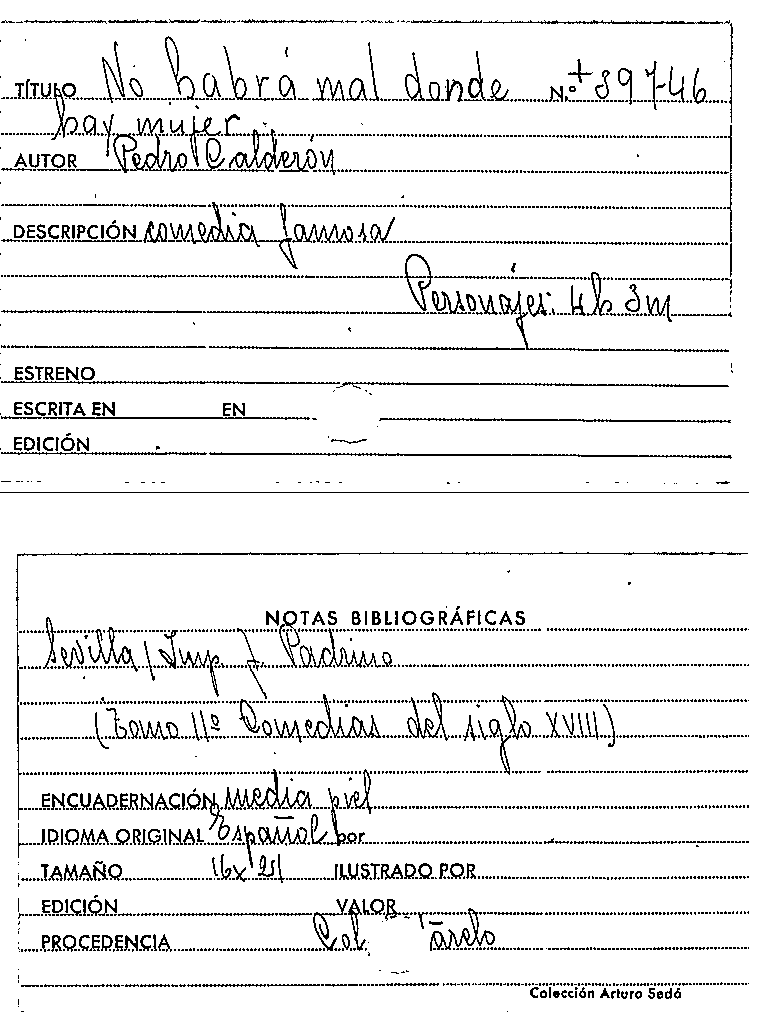 TÍTULO No habrá mal donde N.º + 39746
hay mujer.
AUTOR Pedro Calderón
DESCRIPCIÓN comedia famosa
Personajes: 4h 3m
ESTRENO
ESCRITA EN EN
EDICIÓN
NOTAS BIBLIOGRÁFICAS
Sevilla / Imp J. Padrino
(Tomo 11º Comedias del siglo XVIII)
ENCUADERNACIÓN media piel
IDIOMA ORIGINAL Español por
TAMAÑO 16x21 ILUSTRADO POR
EDICIÓN VALOR
PROCEDENCIA Col.
Colección Arturo Sedó